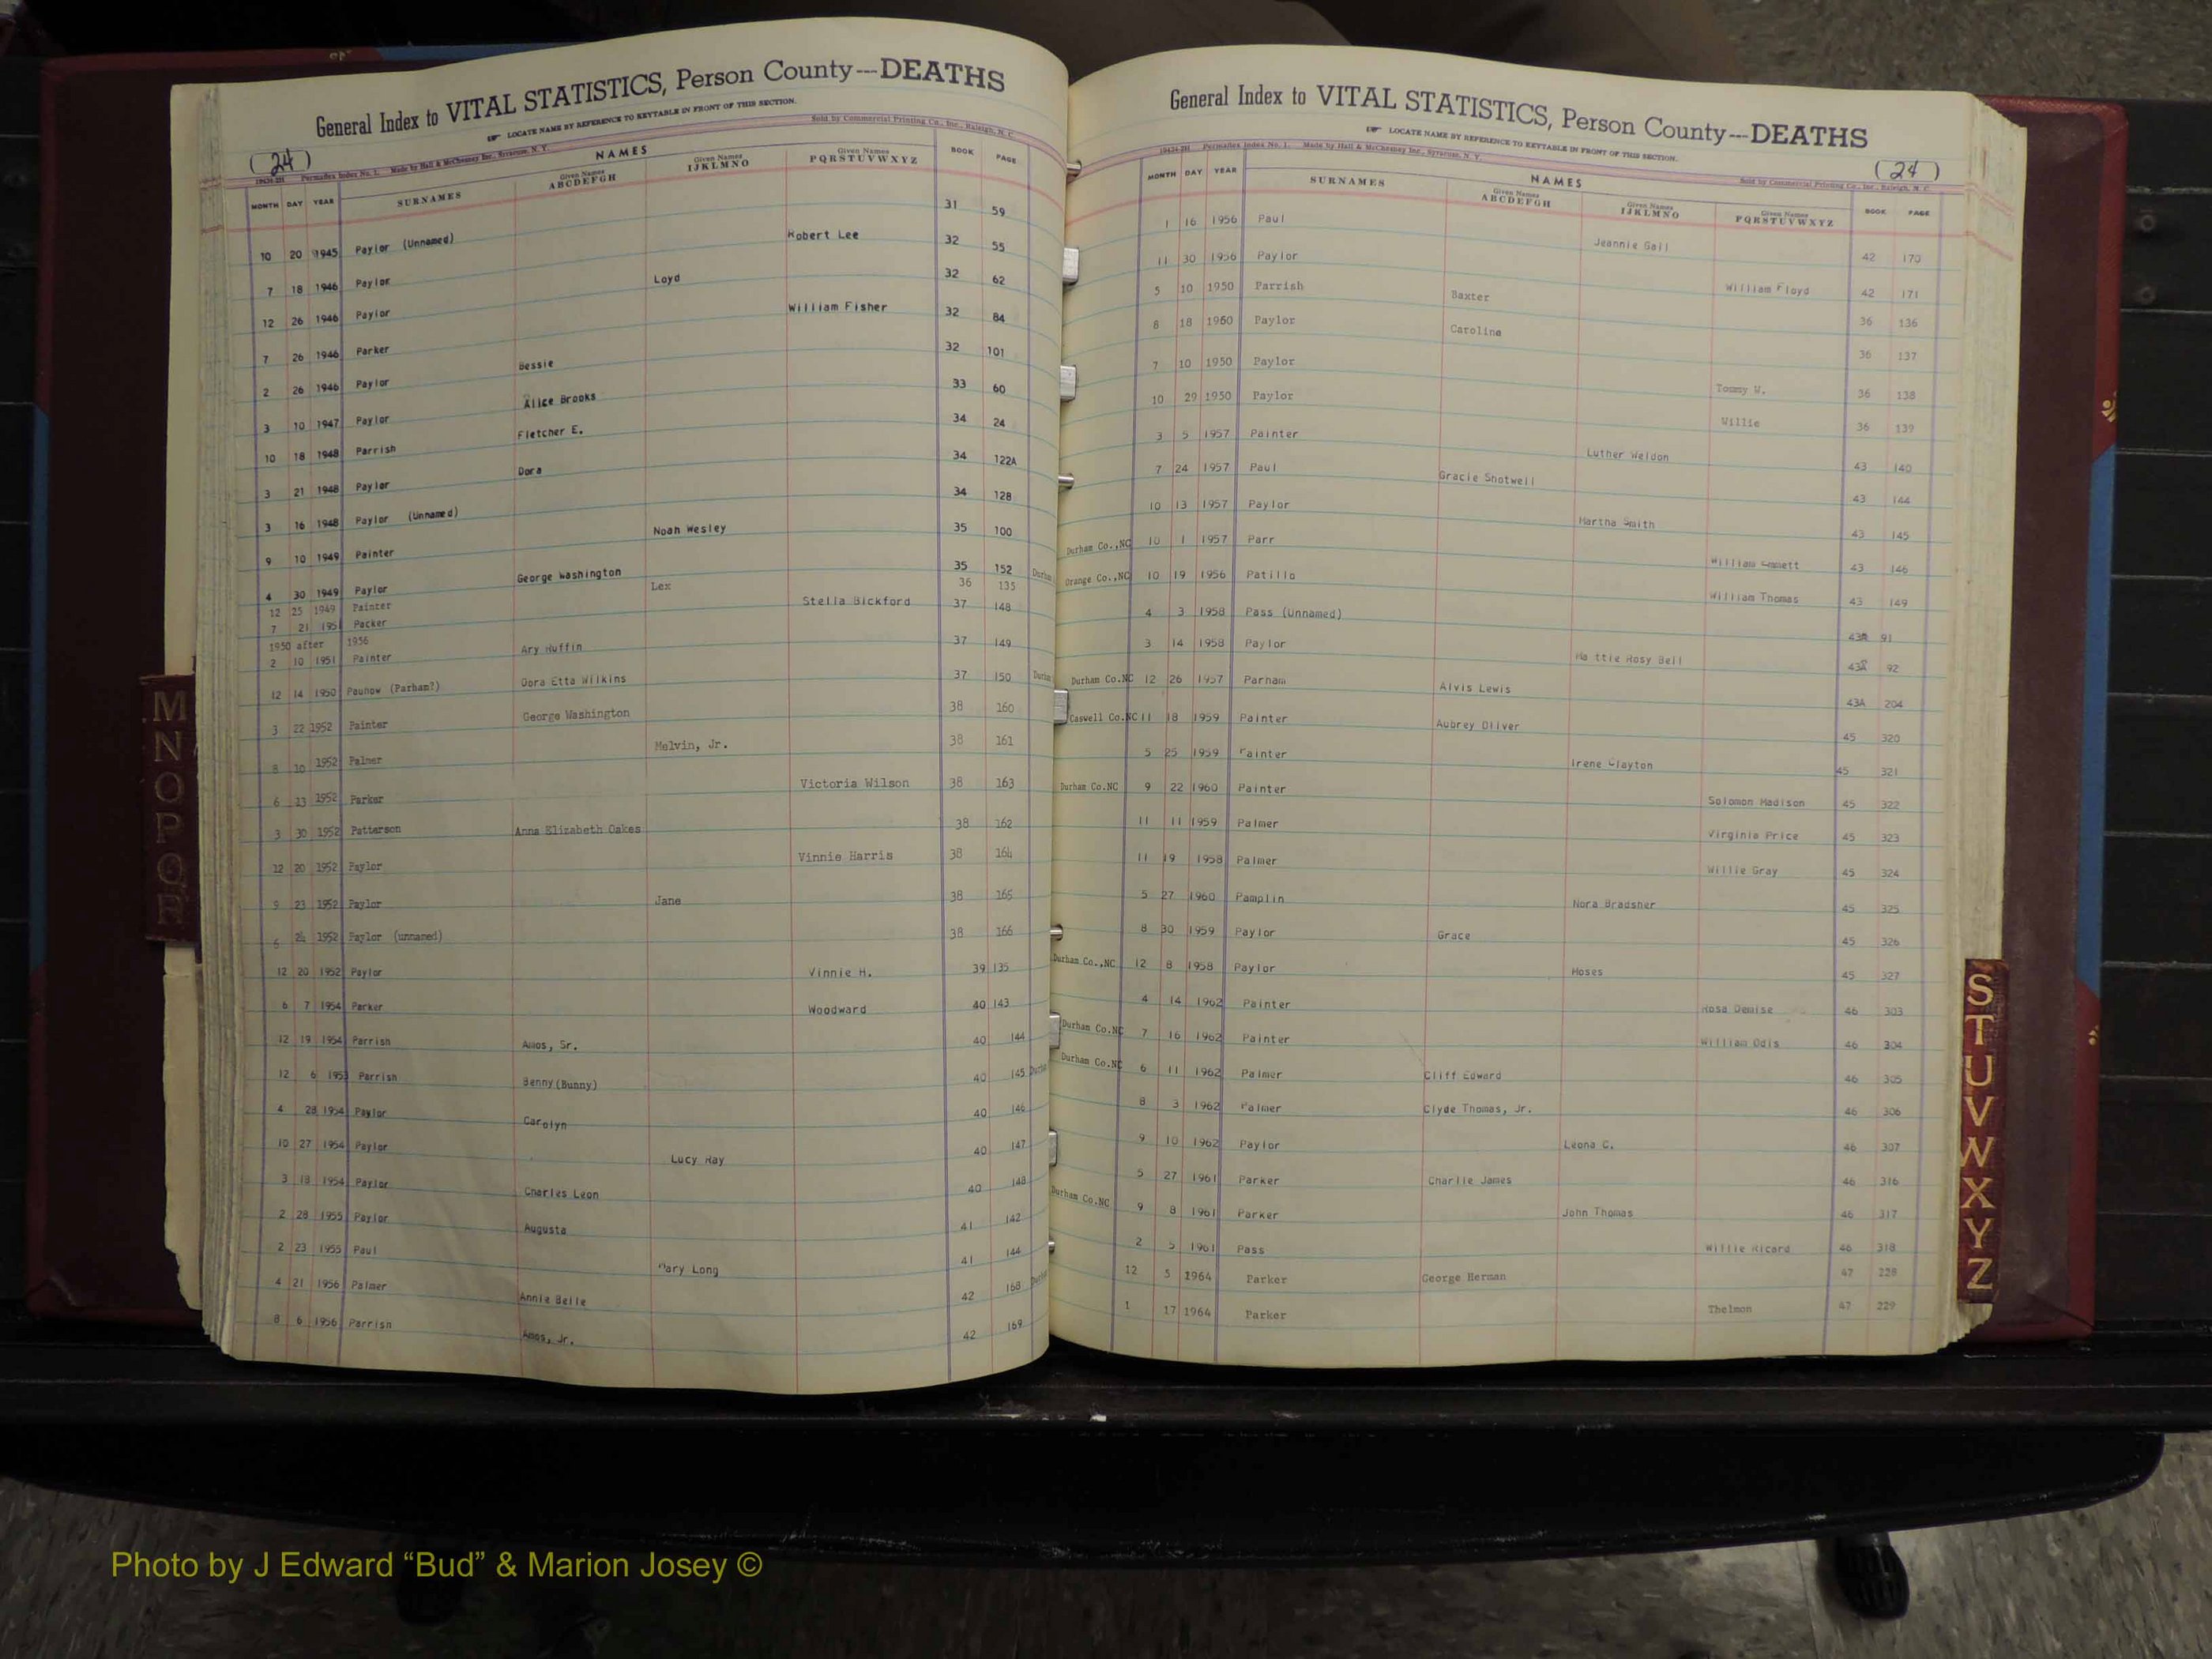 General Index to VITAL STATISTICS, Person County---DEATHS
LOCATE NAME BY REFERENCE TO KEYTABLE IN FRONT OF THIS SECTION.
(24)
Permaflex Index No. 1. Made by Hall & McChesney Inc., Syracuse, N. Y. Sold by Commercial Printing Co., Inc., Raleigh, N. C.
NAMES
MONTH DAY YEAR SURNAMES Given Names ABCDEFGH Given Names IJKLMNO Given Names PQRSTUVWXYZ BOOK PAGE
10 20 1945 Paylor (Unnamed) 31 59
7 18 1946 Paylor Robert Lee 32 55
12 26 1946 Paylor Loyd 32 62
7 26 1946 Parker William Fisher 32 84
2 26 1946 Paylor Bessie 32 101
3 10 1947 Paylor Alice Brooks 33 60
10 18 1948 Parrish Fletcher E. 34 24
3 21 1948 Paylor Dora 34 122A
3 16 1948 Paylor (Unnamed) 34 128
9 10 1949 Painter Noah Wesley 35 100
4 30 1949 Paylor George Washington 35 152
12 25 1949 Painter Lex 36 135
7 21 1951 Packer Stella Bickford 37 148
1950 after 1956
2 10 1951 Painter Ary Ruffin 37 149
12 14 1950 Pauhow (Parham?) Dora Etta Wilkins 37 150
3 22 1952 Painter George Washington 38 160
8 10 1952 Palmer Melvin, Jr. 38 161
6 23 1952 Parker Victoria Wilson 38 163
3 30 1952 Patterson Anna Elizabeth Oakes 38 162
12 20 1952 Paylor Vinnie Harris 38 164
9 23 1952 Paylor Jane 38 165
6 24 1952 Paylor (unnamed) 38 166
12 20 1952 Paylor Vinnie H. 39 135
6 7 1954 Parker Woodward 40 143
12 19 1954 Parrish Amos, Sr. 40 144
12 6 1953 Parrish Benny (Bunny) 40 145
4 28 1954 Paylor Carolyn 40 146
10 27 1954 Paylor Lucy Ray 40 147
3 18 1954 Paylor Charles Leon 40 148
2 28 1955 Paylor Augusta 41 142
2 23 1955 Paul Mary Long 41 144
4 21 1956 Palmer Annie Belle 42 168
8 6 1956 Parrish Amos, Jr. 42 169
General Index to VITAL STATISTICS, Person County---DEATHS
LOCATE NAME BY REFERENCE TO KEYTABLE IN FRONT OF THIS SECTION.
(24)
Permaflex Index No. 1. Made by Hall & McChesney Inc., Syracuse, N. Y. Sold by Commercial Printing Co., Inc., Raleigh, N. C.
NAMES
MONTH DAY YEAR SURNAMES Given Names ABCDEFGH Given Names IJKLMNO Given Names PQRSTUVWXYZ BOOK PAGE
1 16 1956 Paul Jeannie Gail 42 170
11 30 1956 Paylor William Floyd 42 171
5 10 1950 Parrish Baxter 36 136
8 18 1950 Paylor Caroline 36 137
7 10 1950 Paylor Tommy W. 36 138
10 29 1950 Paylor Willie 36 139
3 5 1957 Painter Luther Weldon 43 140
7 24 1957 Paul Gracie Shotwell 43 144
10 13 1957 Paylor Martha Smith 43 145
Durham Co., NC 10 1 1957 Parr William Emmett 43 146
Orange Co., NC 10 19 1956 Patillo William Thomas 43 149
4 3 1958 Pass (Unnamed) 91
3 14 1958 Paylor Mattie Rosy Bell 92
Durham Co. NC 12 26 1957 Parham Alvis Lewis 43A 204
Caswell Co. NC 11 18 1959 Painter Aubrey Oliver 45 320
5 25 1959 Painter Irene Clayton 45 321
Durham Co. NC 9 22 1960 Painter Solomon Madison 45 322
11 11 1959 Palmer Virginia Price 45 323
11 19 1958 Palmer Willie Gray 45 324
5 27 1960 Pamplin Nora Bradsher 45 325
8 30 1959 Paylor Grace 45 326
Durham Co., NC 12 8 1958 Paylor Moses 45 327
4 14 1962 Painter Rosa Demise 46 303
Durham Co. NC 7 16 1962 Painter William Odis 46 304
Durham Co. NC 6 11 1962 Palmer Cliff Edward 46 305
8 3 1962 Palmer Clyde Thomas, Jr. 46 306
9 10 1962 Paylor Leona C. 46 307
5 27 1961 Parker Charlie James 46 316
Durham Co. NC 9 8 1961 Parker John Thomas 46 317
2 5 1961 Pass Willie Ricard 46 318
12 5 1964 Parker George Herman 47 228
1 17 1964 Parker Thelmon 47 229
M
N
O
P
Q
R
S
T
U
V
W
X
Y
Z
Photo by J Edward “Bud” & Marion Josey ©